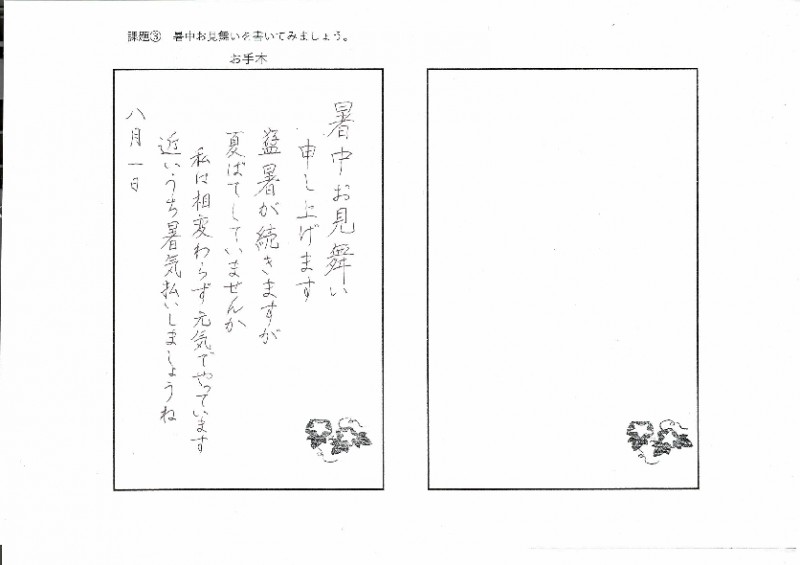 課題③ 暑中お見舞いを書いてみましょう。
お手本
暑中お見舞い
申し上げます
蒸暑が続きますが
夏ばてしていませんか
私は相変わらず元気でやっています
近いうち暑気払いしましょうね
八月一日